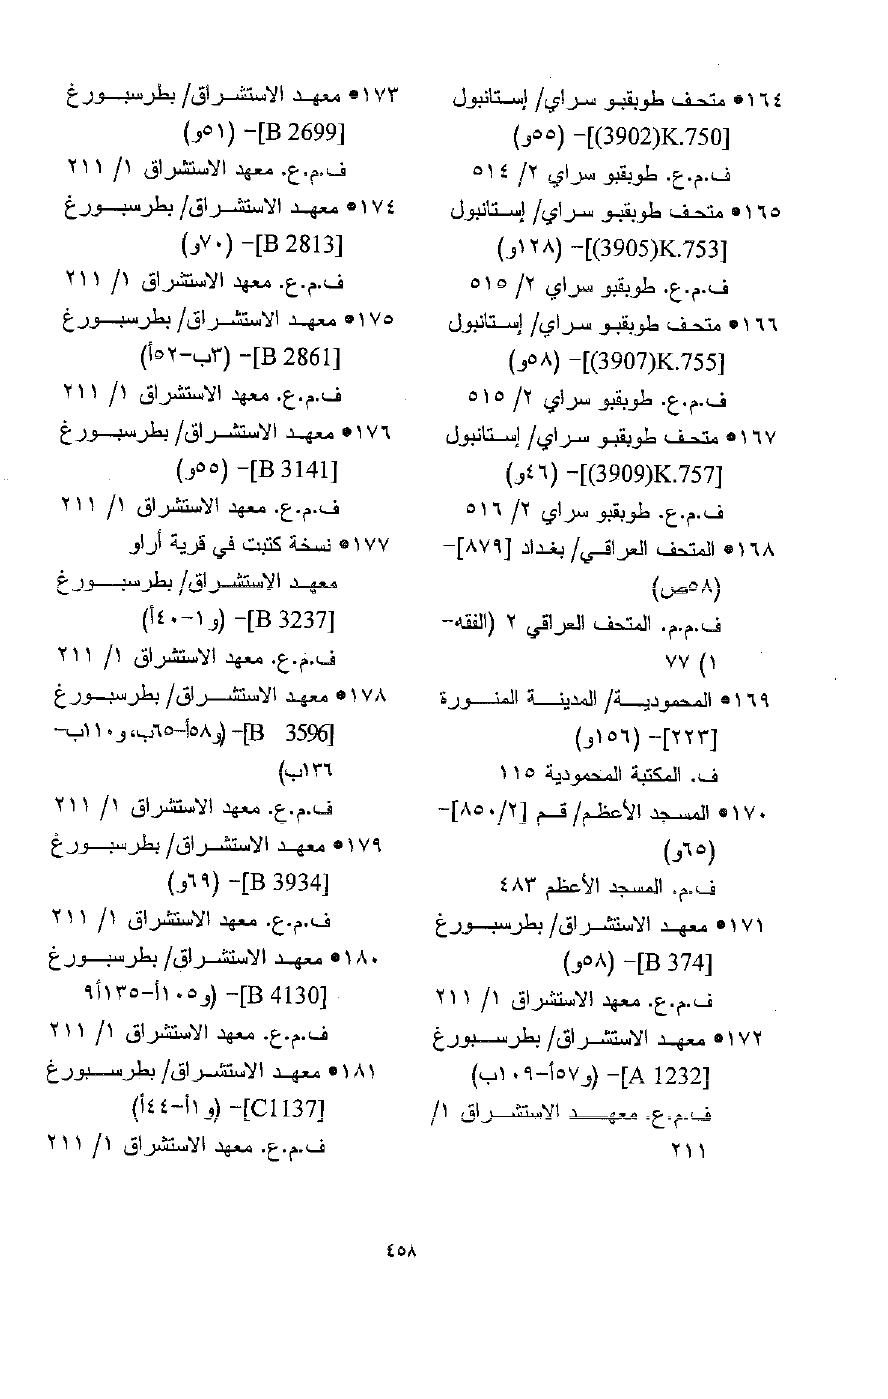 ١٦٤• متحف طوبقبو سراي/ إستانبول
[K.750(3902)]– (٥٥و)
ف.م.ع. طوبقبو سراي ٢/ ٥١٤
١٦٥• متحف طوبقبو سراي/ إستانبول
[K.753(3905)]– (١٢٨و)
ف.م.ع. طوبقبو سراي ٢/ ٥١٥
١٦٦• متحف طوبقبو سراي/ إستانبول
[K.755(3907)]– (٥٨و)
ف.م.ع. طوبقبو سراي ٢/ ٥١٥
١٦٧• متحف طوبقبو سراي/ إستانبول
[K.757(3909)]– (٤٦و)
ف.م.ع. طوبقبو سراي ٢/ ٥١٦
١٦٨• المتحف العراقي/ بغداد [٨٧٩]–
(٥٨ص)
ف.م.م. المتحف العراقي ٢ (الفقه–
١) ٧٧
١٦٩• المحمودية/ المدينة المنورة
[٢٢٣]– (١٥٦و)
ف. المكتبة المحمودية ١١٥
١٧٠• المسجد الأعظم/ قم [٨٥٠/٢]–
(٦٥و)
ف.م. المسجد الأعظم ٤٨٣
١٧١• معهد الاستشراق/ بطرسبورغ
[B 374]– (٥٨و)
ف.م.ع. معهد الاستشراق ١/ ٢١١
١٧٢• معهد الاستشراق/ بطرسبورغ
[A 1232]– (و٥٧أ–١٠٩ب)
ف.م.ع. معهد الاستشراق ١/
٢١١
١٧٣• معهد الاستشراق/ بطرسبورغ
[B 2699]– (٥١و)
ف.م.ع. معهد الاستشراق ١/ ٢١١
١٧٤• معهد الاستشراق/ بطرسبورغ
[B 2813]– (٧٠و)
ف.م.ع. معهد الاستشراق ١/ ٢١١
١٧٥• معهد الاستشراق/ بطرسبورغ
[B 2861]– (٣ب–٥٢أ)
ف.م.ع. معهد الاستشراق ١/ ٢١١
١٧٦• معهد الاستشراق/ بطرسبورغ
[B 3141]– (٥٥و)
ف.م.ع. معهد الاستشراق ١/ ٢١١
١٧٧• نسخة كتبت في قرية أراو
معهد الاستشراق/ بطرسبورغ
[B 3237]– (و١–٤٠أ)
ف.م.ع. معهد الاستشراق ١/ ٢١١
١٧٨• معهد الاستشراق/ بطرسبورغ
[B 3596]– (و٥٨أ–٦٥ب، و١١٠ب–
١٣٦ب)
ف.م.ع. معهد الاستشراق ١/ ٢١١
١٧٩• معهد الاستشراق/ بطرسبورغ
[B 3934]– (٦٩و)
ف.م.ع. معهد الاستشراق ١/ ٢١١
١٨٠• معهد الاستشراق/ بطرسبورغ
[B 4130]– (و١٠٥أ–١٣٥أ٩
ف.م.ع. معهد الاستشراق ١/ ٢١١
١٨١• معهد الاستشراق/ بطرسبورغ
[C1137]– (و١أ–٤٤أ)
ف.م.ع. معهد الاستشراق ١/ ٢١١
٤٥٨